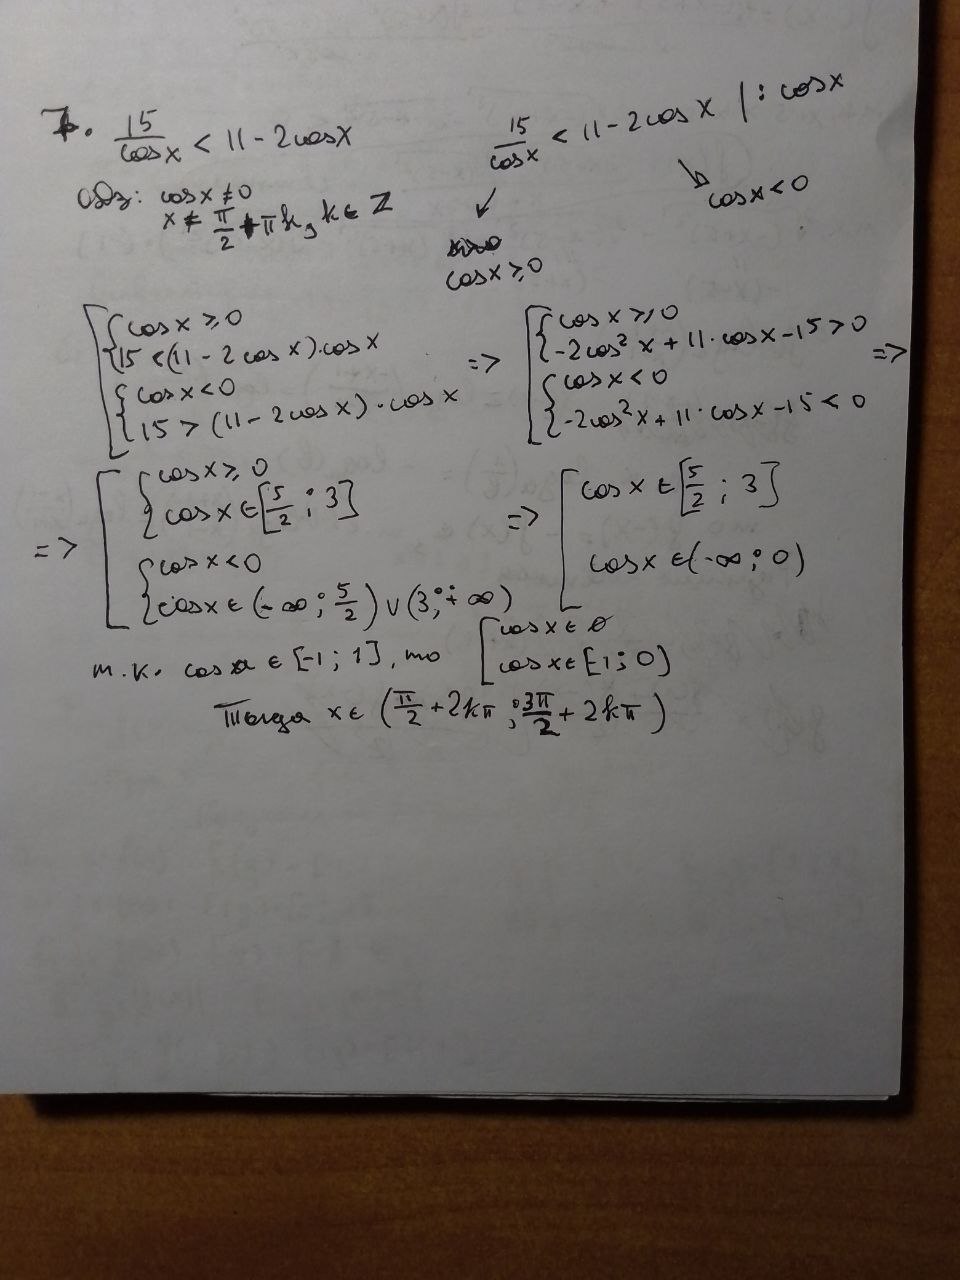 7. 15/cosx < 11 - 2cosx
ОДЗ: cosx ≠ 0
x ≠ π/2 + πk, k ∈ Z
15/cosx < 11 - 2cosx | : cosx
cosx ≥ 0
cosx < 0
[ { cosx ≥ 0
15 < (11 - 2cosx)·cosx
{ cosx < 0
15 > (11 - 2cosx)·cosx
=> [ { cosx ≥ 0
-2cos²x + 11·cosx - 15 > 0 =>
{ cosx < 0
-2cos²x + 11·cosx - 15 < 0
=> [ { cosx ≥ 0
cosx ∈ [5/2 ; 3]
{ cosx < 0
cosx ∈ (-∞ ; 5/2) ∪ (3 ; +∞)
=> [ cosx ∈ [5/2 ; 3]
cosx ∈ (-∞ ; 0)
т.к. cosx ∈ [-1 ; 1], то [ cosx ∈ ∅
cosx ∈ [-1 ; 0)
Тогда x ∈ (π/2 + 2kπ ; 3π/2 + 2kπ)